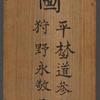 平埜道参
狩野永敬